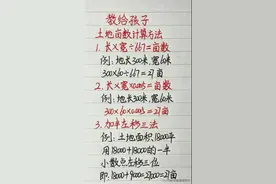 教给孩子
土地亩数计算方法
1. 长×宽÷667=亩数
例:地长300米,宽60米
300×60÷667=27亩
2. 长×宽×0.0015=亩数
例:地长300米,宽60米
300×60×0.0015=27亩
3. 加半左移三法
例:土地面积18000平
用18000+18000的一半
小数点左移三位
即:18000+9000=27000=27亩